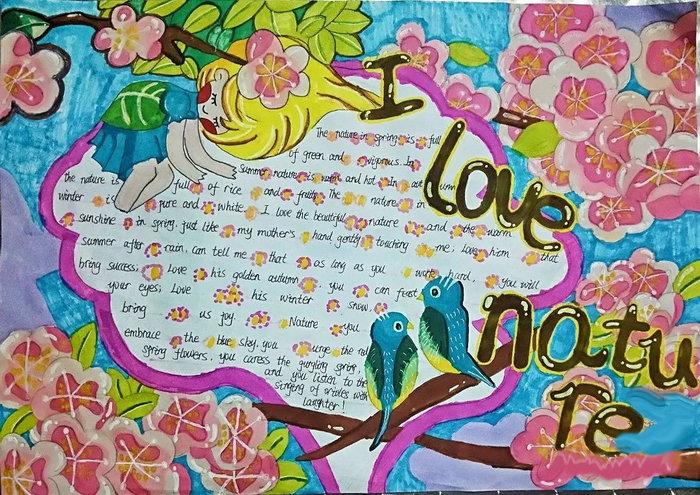 I love natu re
The nature in spring is full
of green and vigorous. In
Summer nature is warm and hot. in autumn
the nature is full of rice and fruits. The nature in
winter is pure and white. I love the beautiful nature and the warm
sunshine in spring. just like my mother's hand gently touching me; Love him that
summer after rain, can tell me that as long as you work hard, you will
bring success; Love his golden autumn, you can feast
your eyes; Love his winter snow,
bring us joy. Nature you
embrace the blue sky, you urge the red
spring flowers, you caress the gurgling spring,
and you listen to the
singing of with
laughter!